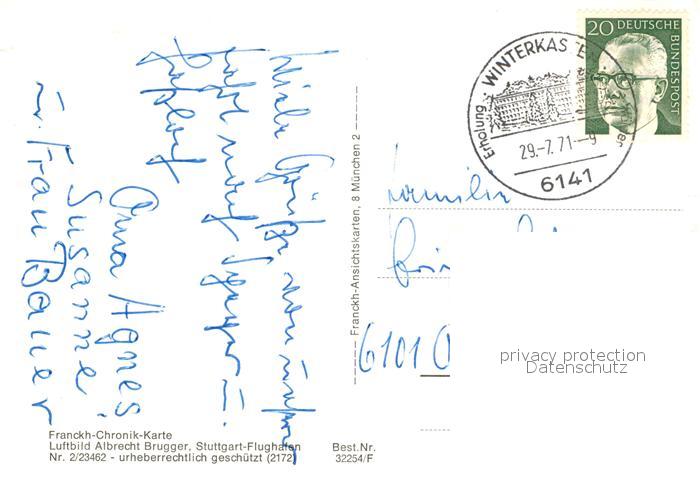 Viele Grüße von unserer
Fahrt nach
Anna Agnes
Susanne
u. Frau Bauer
Franckh-Chronik-Karte
Luftbild Albrecht Brugger, Stuttgart-Flughafen
Nr. 2/23462 - urheberrechtlich geschützt (2172)
Best.Nr.
32254/F
Franckh-Ansichtskarten, 8 München 2
20 DEUTSCHE BUNDESPOST
WINTERKASTE
Erholung
29.-7.71.--9
6141
Familie
6101
privacy protection
Datenschutz